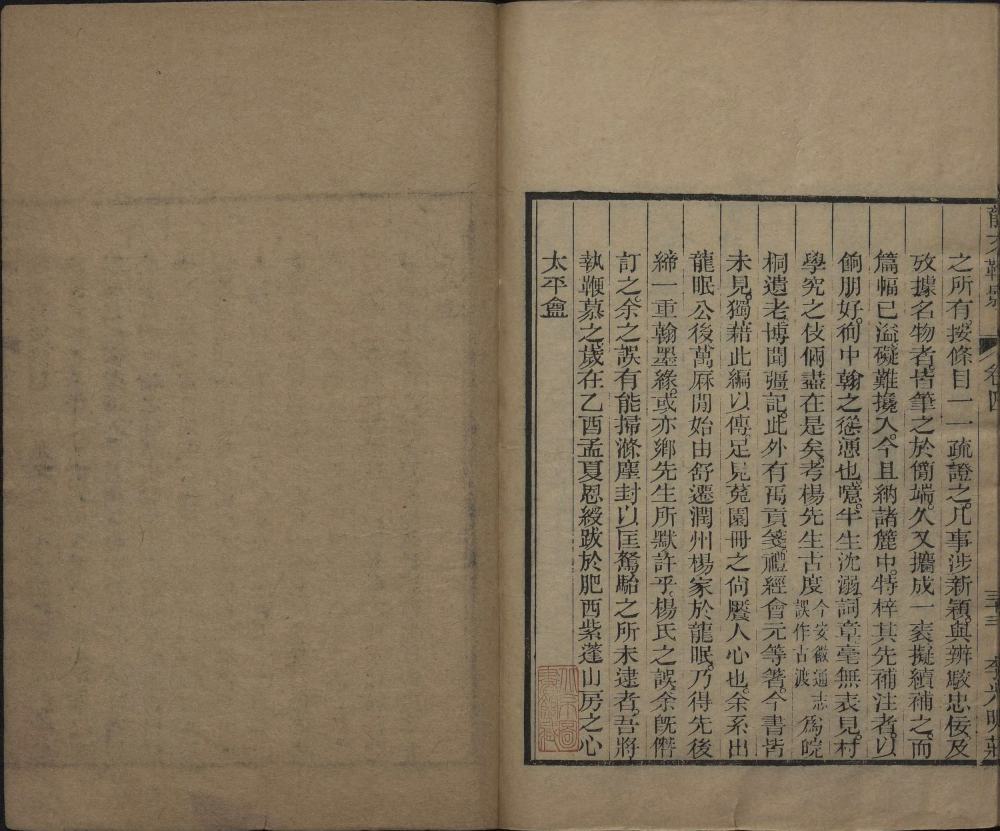 龍文鞭影
卷四
三十三
李光明莊
之所有按條目一一疏證之凡事涉新穎與辨駁忠佞及
攷據名物者皆筆之於簡端久又擴成一袠擬續補之而
篇幅已溢礙難攙入今且納諸簏中特梓其先補注者以
餉朋好徇中翰之慫慂也噫半生沈溺詞章毫無表見村
學究之伎倆盡在是矣考楊先生古度今安徽通志誤作古渡爲皖
桐遺老博聞彊記此外有禹貢箋禮經會元等箸今書皆
未見獨藉此編以傳足見菟園冊之尙饜人心也余系出
龍眠公後萬厤閒始由舒遷潤州楊家於龍眠乃得先後
締一重翰墨緣或亦鄉先生所默許乎楊氏之誤余旣僭
訂之余之誤有能掃滌塵封以匡駑駘之所未逮者吾將
執鞭慕之歲在乙酉孟夏恩綬跋於肥西紫蓬山房之心
太平盦